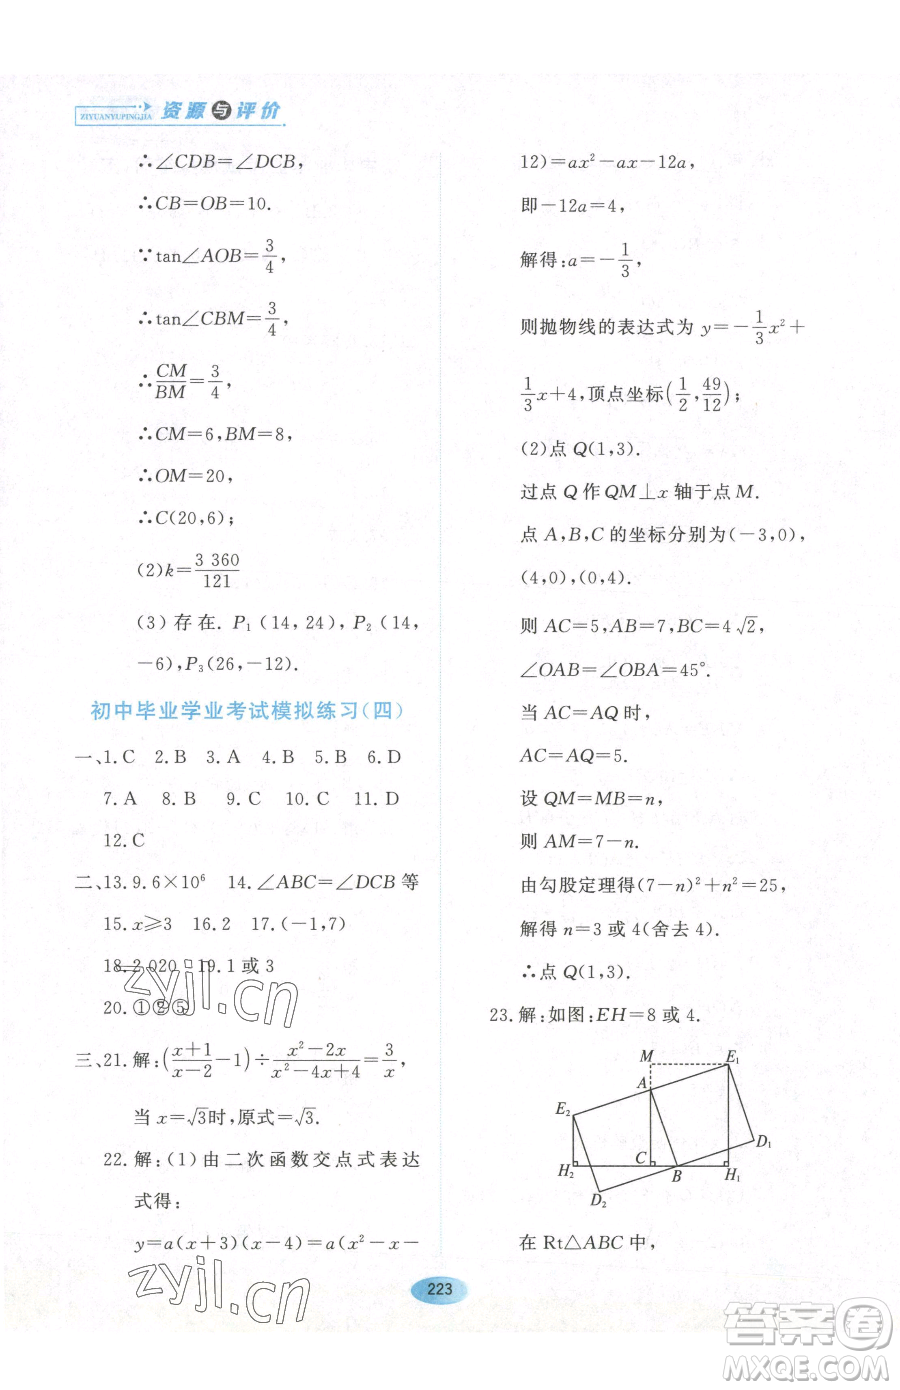 资源与评价
ZIYUANYUPINGJIA
∴∠CDB=∠DCB,
∴CB=OB=10.
∵tan∠AOB=3/4,
∴tan∠CBM=3/4,
∴CM/BM=3/4,
∴CM=6,BM=8,
∴OM=20,
∴C(20,6);
(2)k=3 360/121
(3)存在. P₁(14,24),P₂(14,
-6),P₃(26,-12).
初中毕业学业考试模拟练习(四)
一、1.C 2.B 3.A 4.B 5.B 6.D
7.A 8.B 9.C 10.C 11.D
12.C
二、13.9.6×10⁶ 14.∠ABC=∠DCB等
15.x≥3 16.2 17.(-1,7)
18.2 020 19.1或3
20.①②⑤
三、21.解:((x+1)/(x-2)-1)÷(x²-2x)/(x²-4x+4)=3/x,
当x=√3时,原式=√3.
22.解:(1)由二次函数交点式表达
式得:
y=a(x+3)(x-4)=a(x²-x-
12)=ax²-ax-12a,
即-12a=4,
解得:a=-1/3,
则抛物线的表达式为y=-1/3x²+
1/3x+4,顶点坐标(1/2,49/12);
(2)点Q(1,3).
过点Q作QM⊥x轴于点M.
点A,B,C的坐标分别为(-3,0),
(4,0),(0,4).
则AC=5,AB=7,BC=4√2,
∠OAB=∠OBA=45°.
当AC=AQ时,
AC=AQ=5.
设QM=MB=n,
则AM=7-n.
由勾股定理得(7-n)²+n²=25,
解得n=3或4(舍去4).
∴点Q(1,3).
23.解:如图:EH=8或4.
M E₁
A
E₂
D₁
H₂ C B H₁
D₂
在Rt△ABC中,
223
zyjl.cn
zyjl.cn
答案圈
MXQE.COM